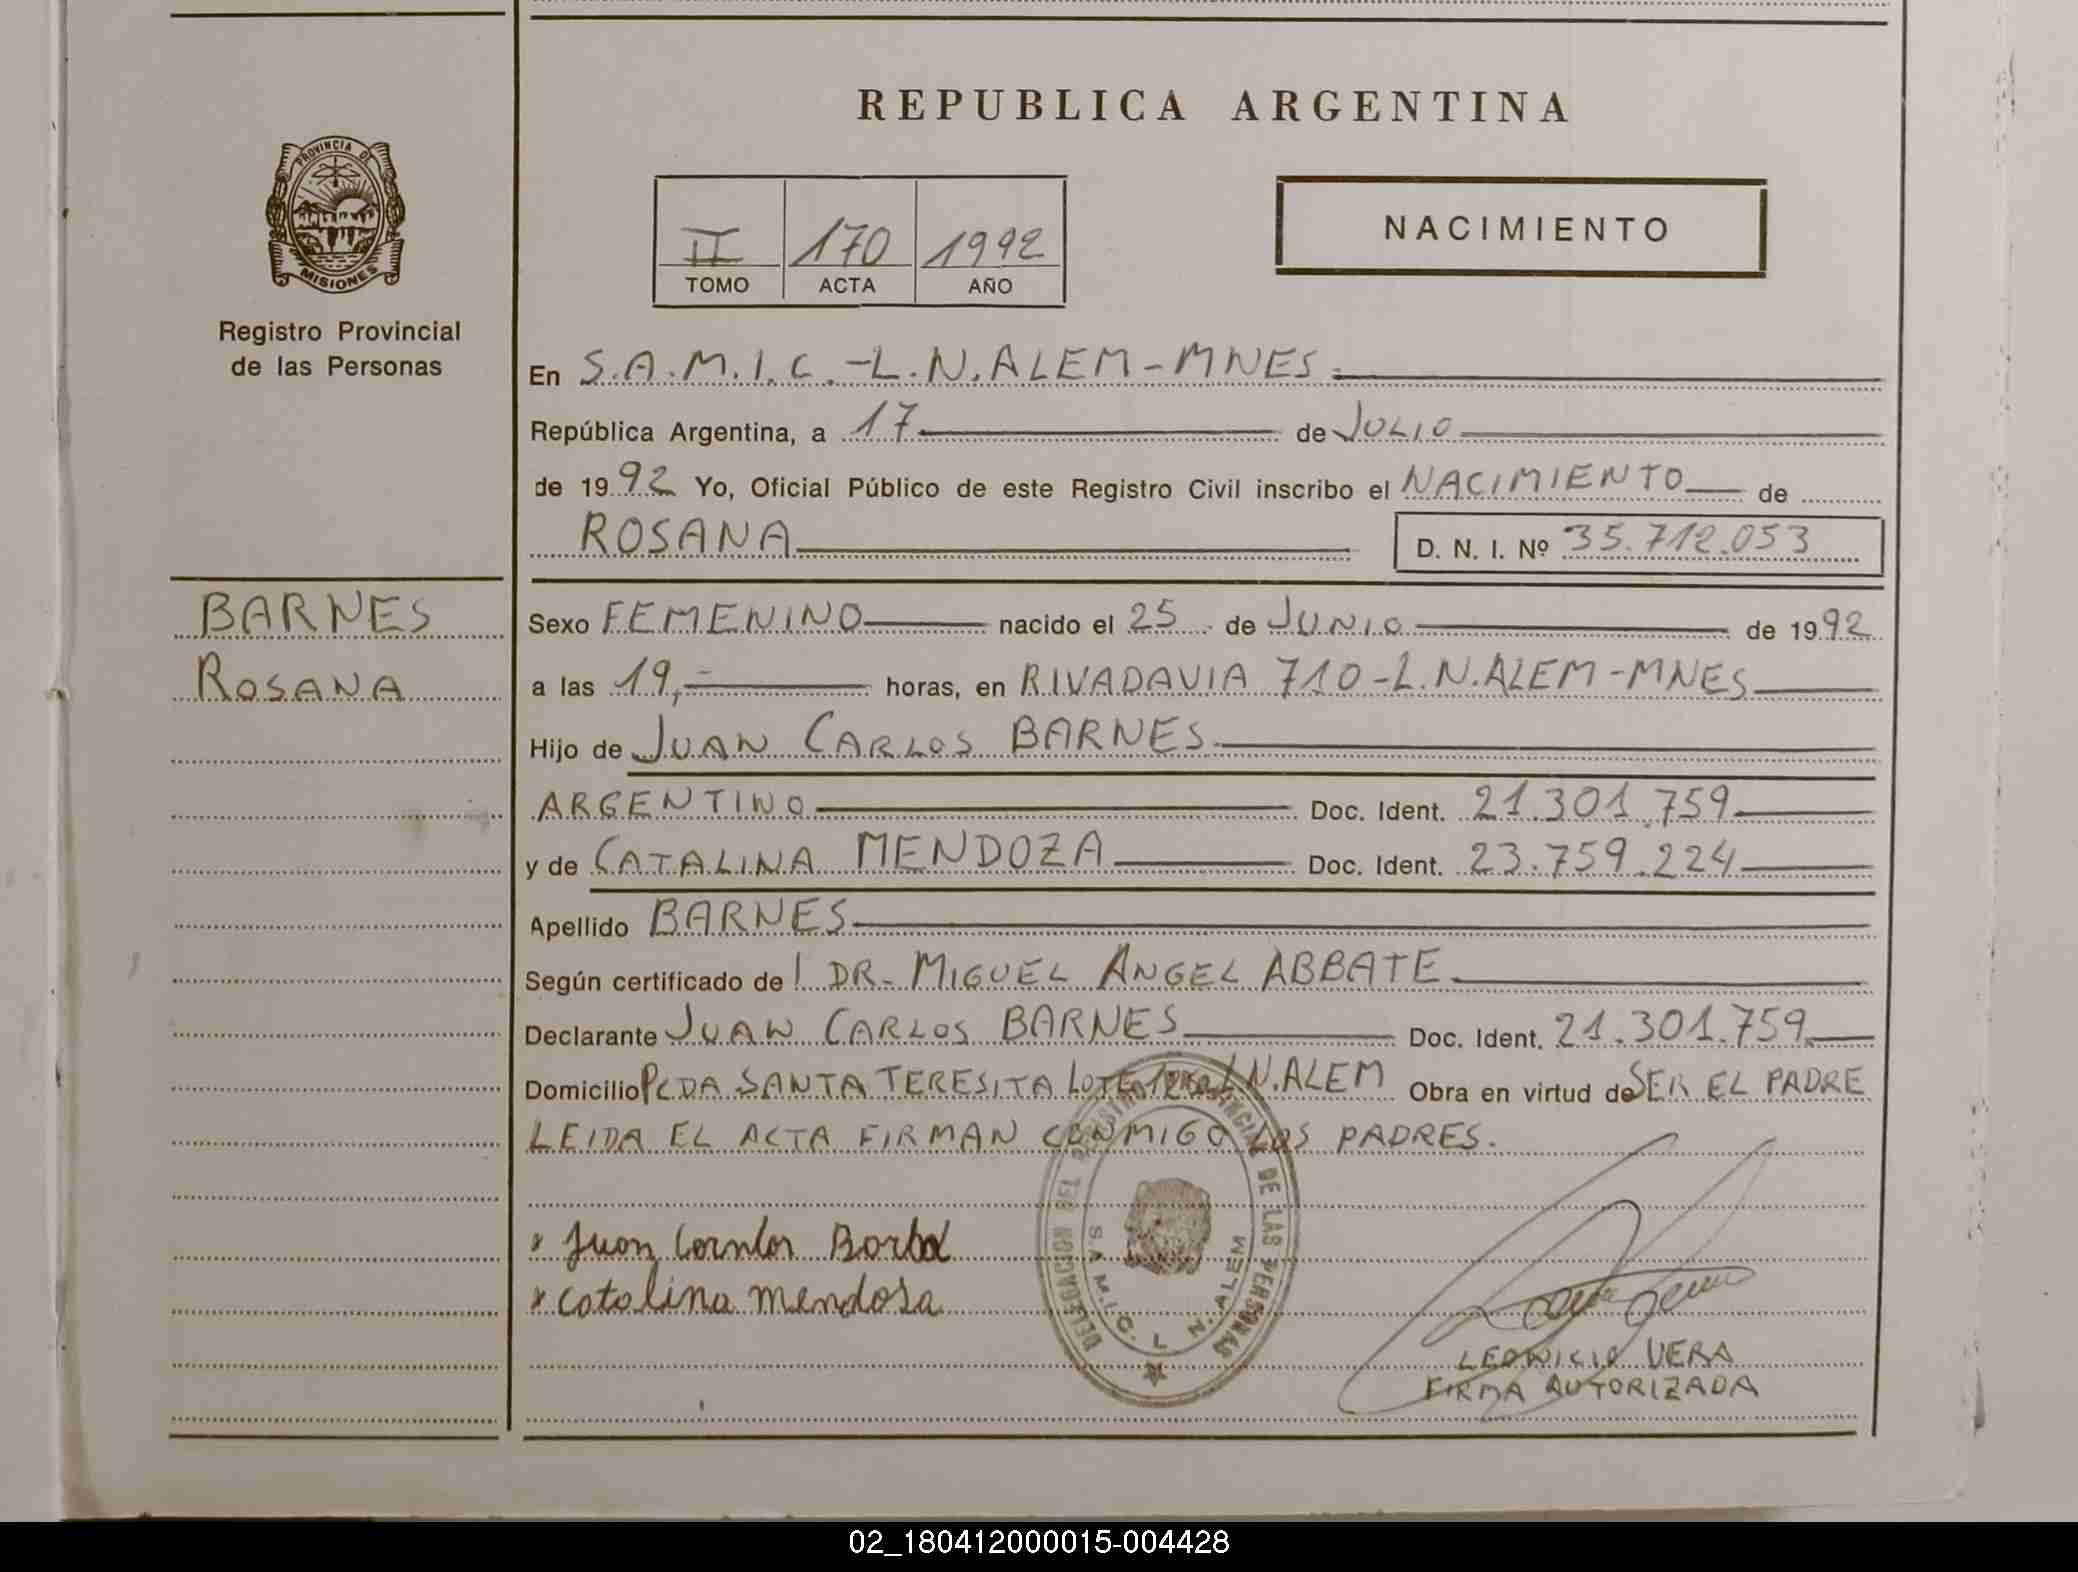 REPUBLICA ARGENTINA
PROVINCIA DE
MISIONES
Registro Provincial
de las Personas
II 170 1992
TOMO ACTA AÑO
NACIMIENTO
En S.A.M.I.C.-L.N.ALEM-MNES
República Argentina, a 17 de JULIO
de 1992 Yo, Oficial Público de este Registro Civil inscribo el NACIMIENTO de
ROSANA D. N. I. Nº 35.712.053
BARNES
ROSANA
Sexo FEMENINO nacido el 25 de JUNIO de 1992
a las 19,- horas, en RIVADAVIA 710-L.N.ALEM-MNES
Hijo de JUAN CARLOS BARNES
ARGENTINO Doc. Ident. 21.301.759
y de CATALINA MENDOZA Doc. Ident. 23.759.224
Apellido BARNES
Según certificado de l DR. MIGUEL ANGEL ABBATE
Declarante JUAN CARLOS BARNES Doc. Ident. 21.301.759
Domicilio PCDA SANTA TERESITA LOTE L.N.ALEM Obra en virtud de SER EL PADRE
LEIDA EL ACTA FIRMAN CONMIGO LOS PADRES.
Juan
Catalina mendosa
DELEGACION DEL REGISTRO PROVINCIAL DE LAS PERSONAS
S.A.M.I.C. L. N. ALEM
LEONICIO VERA
FIRMA AUTORIZADA
02_180412000015-004428